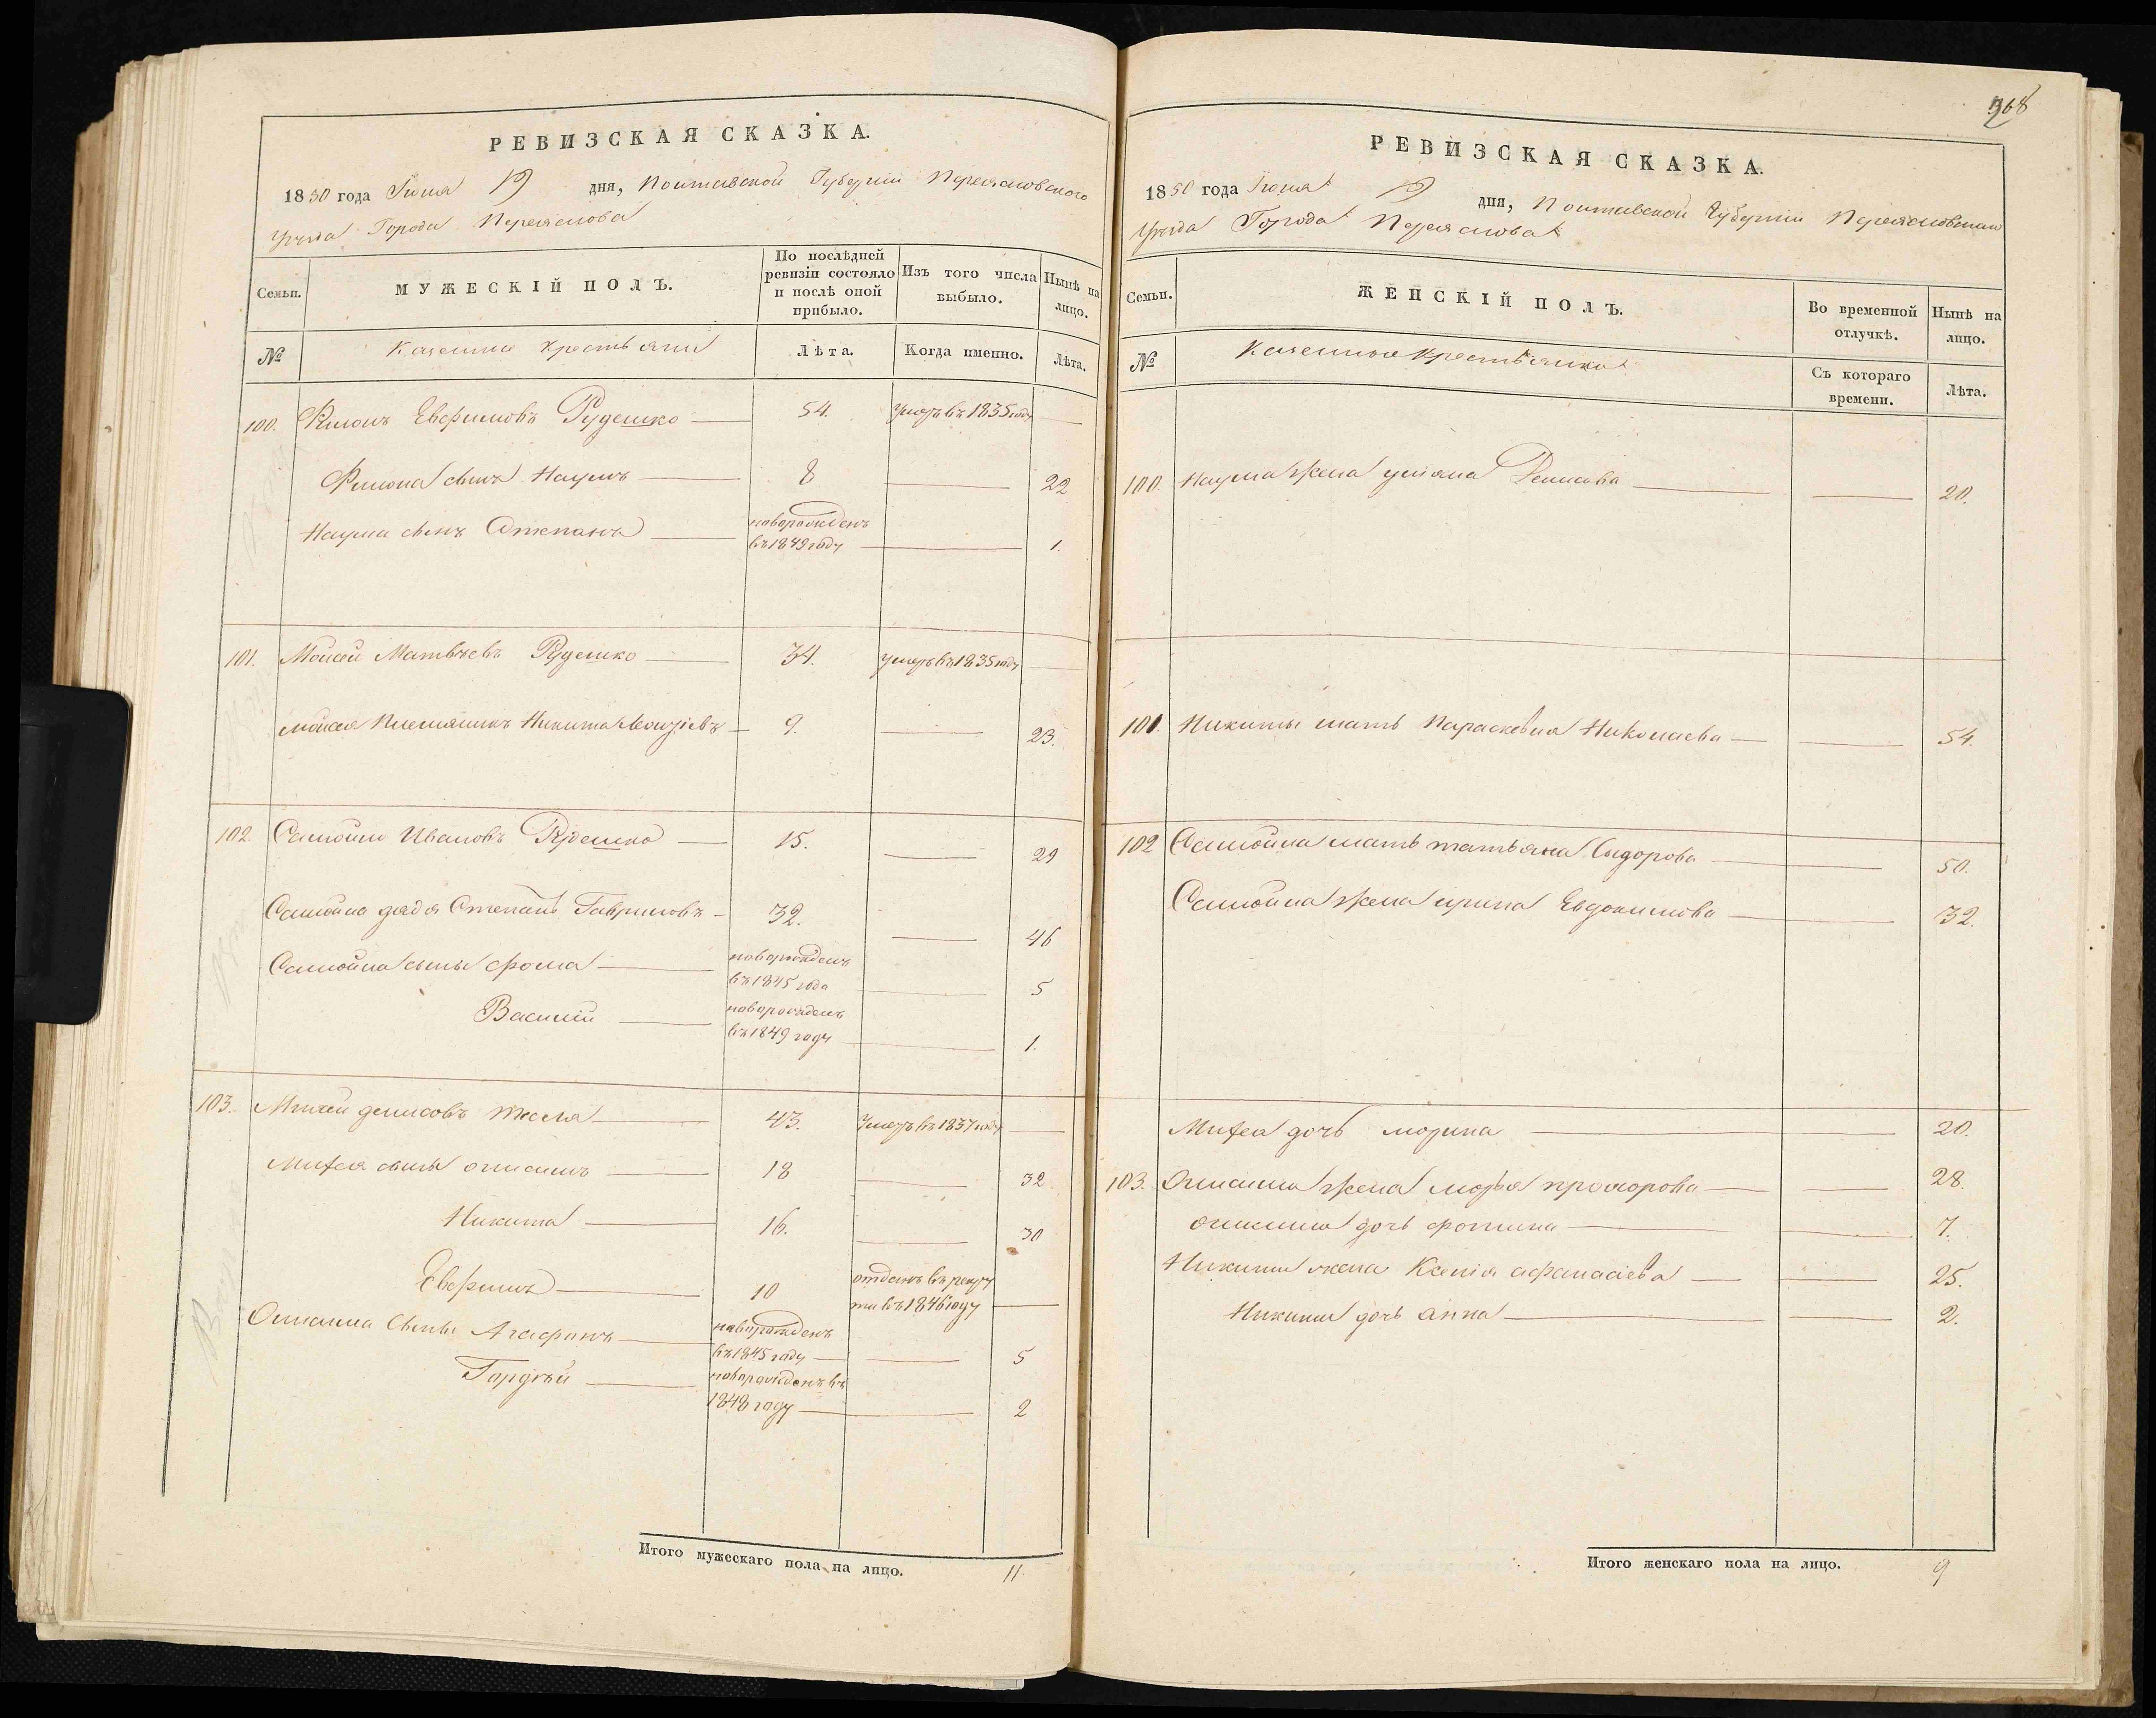 РЕВИЗСКАЯ СКАЗКА.
1850 года Июня 19 дня, Полтавской Губернии Переясловского
Уезда Города Переяслова
Семьи.
МУЖЕСКІЙ ПОЛЪ.
По послѣдней ревизіи состояло и послѣ оной прибыло.
Изъ того числа выбыло.
Нынѣ на лицо.
№
Казенные крестьяни
Лѣта.
Когда именно.
Лѣта.
100. Филонъ Евфимовъ Руденко 54. Умеръ въ 1835 году
Филона сынъ Наумъ 8 22
Наума сынъ Степанъ новорожденъ въ 1849 году 1.
101. Мойсей Матвѣевъ Руденко 34. Умеръ въ 1835 году
Мойсея Племянникъ Никита 9. 23.
102. Самойло Ивановъ Руденко 15. 29
Самойла дядя Степанъ Гавриловъ 32. 46
Самойла сыны Фома новорожденъ въ 1845 года 5
Василій новорожденъ въ 1849 году 1.
103. Михей денисовъ Тесля 43. Умеръ въ 1837 году
Михея сыны 18 32
Никита 16. 30
Евфимъ 10 отданъ въ рекруты въ 1846 году
сыны Агафонъ новорожденъ въ 1845 году 5
Гордѣй новорожденъ въ 1848 году 2
Итого мужескаго пола на лицо. 11.
968
РЕВИЗСКАЯ СКАЗКА.
1850 года Июня 19 дня, Полтавской Губернии Переясловского
Уезда Города Переяслова
Семьи.
ЖЕНСКІЙ ПОЛЪ.
Во временной отлучкѣ.
Нынѣ на лицо.
№
Казенные крестьянки
Съ котораго времени.
Лѣта.
100. Наума жена улияна Денисова 20.
101. Никиты мать Параскевия Николаева 54.
102 Самойла мать татьяна Сидорова 50.
Самойла жена ирина Евдокимова 32.
Михея дочь марина 20.
103. жена марья прохорова 28.
дочь фотина 7.
Никиты жена Ксенія афанасіева 25.
Никиты дочь анна 2.
Итого женскаго пола на лицо. 9